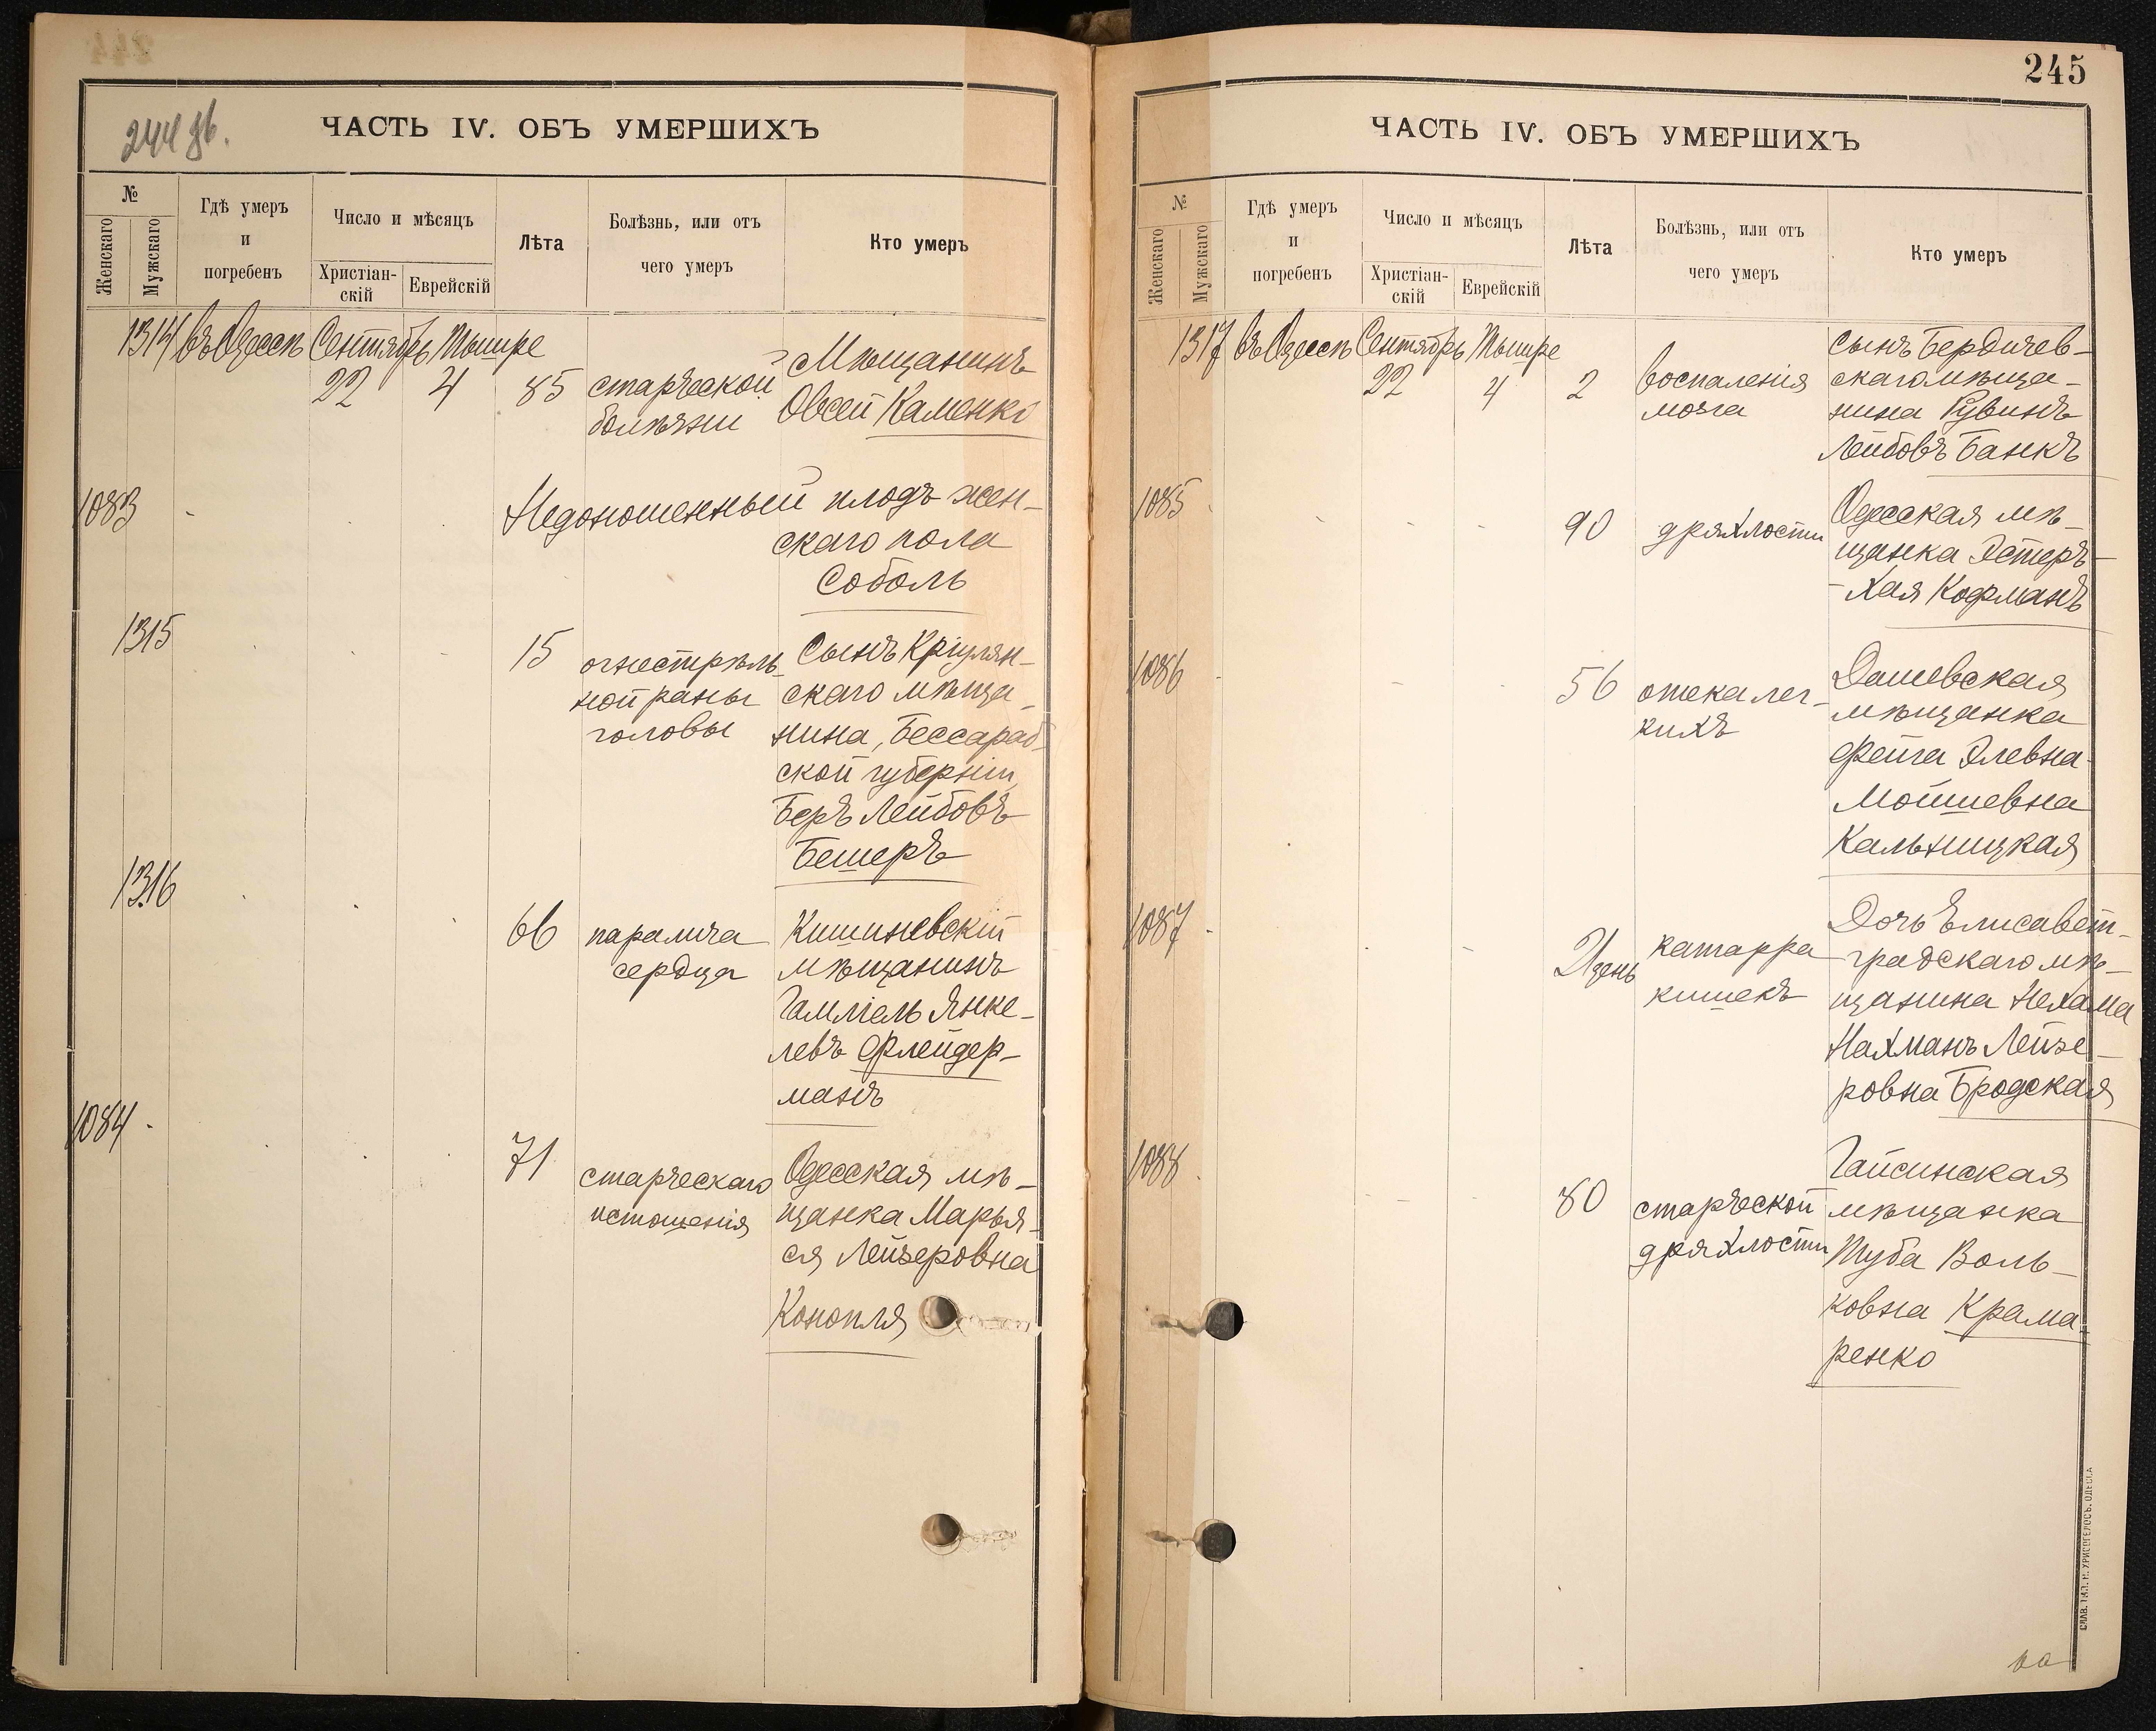 244 зв.
ЧАСТЬ IV. ОБЪ УМЕРШИХЪ
№
Женскаго
Мужскаго
Гдѣ умеръ
и
погребенъ
Число и мѣсяцъ
Христіан-
скій
Еврейскій
Лѣта
Болѣзнь, или отъ
чего умеръ
Кто умеръ
1314 въ Одессѣ Сентябрь Тышре
22 4 85 старческой Мѣщанинъ
болѣзни Овсей Каменко
1083
Недоношенный плодъ жен-
скаго пола
Соболь
1315
15 огнестрѣль- Сынъ Кріулян-
ной раны скаго мѣща-
головы нина, Бессараб-
ской губерніи,
Беръ Лейбовъ
Бешеръ
1316
66 паралича Кишиневскій
сердца мѣщанинъ
Гамліель Янке-
левъ Флейдер-
манъ
1084
71 старческаго Одесская мѣ-
истощенія щанка Марья-
ся Лейзеровна
Конопля
245
ЧАСТЬ IV. ОБЪ УМЕРШИХЪ
№
Женскаго
Мужскаго
Гдѣ умеръ
и
погребенъ
Число и мѣсяцъ
Христіан-
скій
Еврейскій
Лѣта
Болѣзнь, или отъ
чего умеръ
Кто умеръ
1317 въ Одессѣ Сентябрь Тышре сынъ Бердичев-
22 4 2 воспаленія скаго мѣща-
мозга нина Рувинъ
Лейбовъ Банкъ
1085
90 дряхлости Одесская мѣ-
щанка Эстеръ-
-Хая Кофманъ
1086
56 отека лег- Дашевская
кихъ мѣщанка
Фейга Элевна-
Мойшевна
Кальницкая
1087
21 день катарра Дочь Елисавет-
кишекъ градскаго мѣ-
щанина Нехама
Нахманъ Лейзе-
ровна Бродская
1088
80 старческой Гайсинская
дряхлости мѣщанка
Туба Воль-
ковна Крама-
ренко
СЛАВ. ТИП. Н. ХРИСОГЕЛОСЪ, ОДЕССА